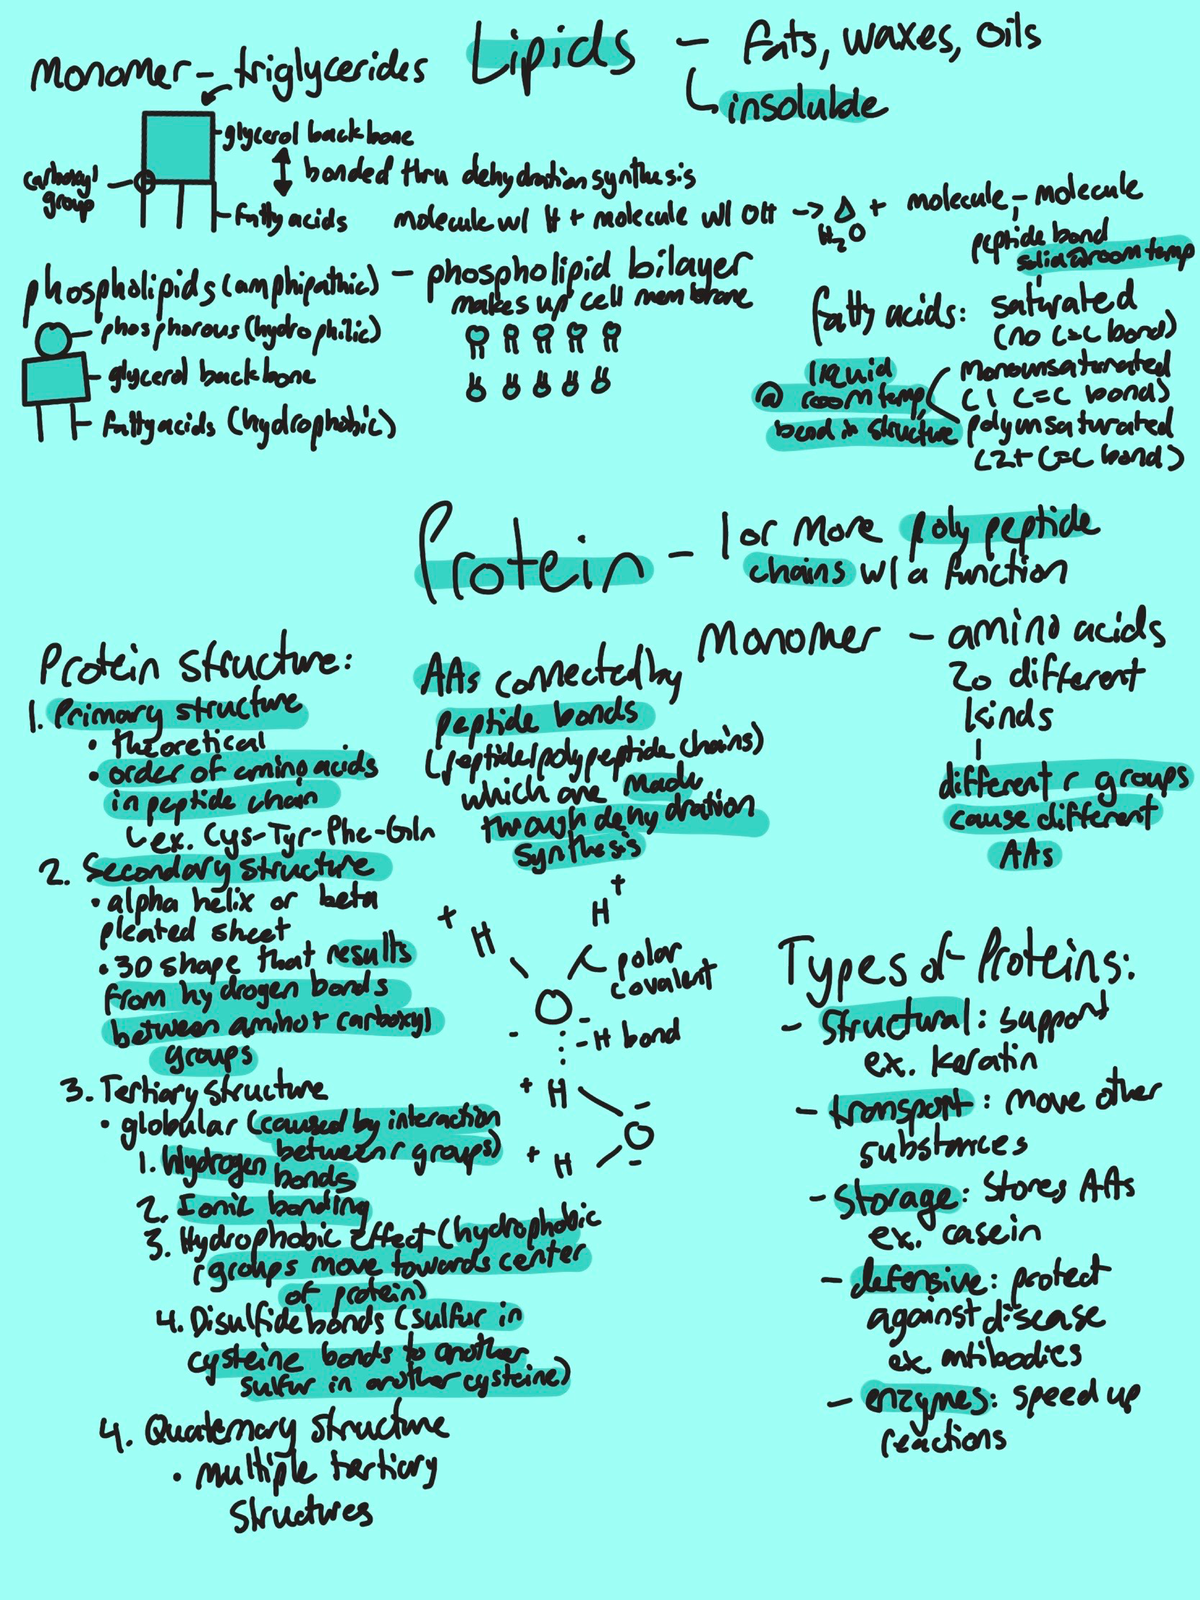 Lipids - fats, waxes, oils
insoluble
monomer - triglycerides
glycerol backbone
carboxyl
group
bonded thru dehydration synthesis
fatty acids
molecule w/ H + molecule w/ OH -> △ + molecule - molecule
H₂O
peptide bond
phospholipids (amphipathic) - phospholipid bilayer
makes up cell membrane
phosphorous (hydrophilic)
glycerol backbone
fatty acids (hydrophobic)
solid @ room temp
fatty acids: saturated
(no C=C bond)
liquid
@ room temp,
bend in structure
monounsaturated
(1 C=C bond)
polyunsaturated
(2+ C=C bond)
Protein - 1 or more polypeptide
chains w/ a function
Monomer - amino acids
20 different
kinds
different r groups
cause different
AAs
Protein structure:
1. Primary structure
• theoretical
• order of amino acids
in peptide chain
ex. Cys-Tyr-Phe-Gln
2. Secondary structure
• alpha helix or beta
pleated sheet
• 3D shape that results
from hydrogen bonds
between amino + carboxyl
groups
3. Tertiary structure
• globular (caused by interaction
between r groups)
1. Hydrogen
bonds
2. Ionic bonding
3. Hydrophobic Effect (hydrophobic
r groups move towards center
of protein)
4. Disulfide bonds (sulfur in
cysteine bonds to another
sulfur in another cysteine)
4. Quaternary structure
• multiple tertiary
structures
AAs connected by
peptide bonds
(peptide/polypeptide chains)
which are made
through dehydration
synthesis
+ H
H +
polar
covalent
O
- -
- H bond
+ H
-
O
+ H
-
Types of Proteins:
- structural: support
ex. keratin
- transport: move other
substances
- storage: stores AAs
ex. casein
- defensive: protect
against disease
ex antibodies
- enzymes: speed up
reactions